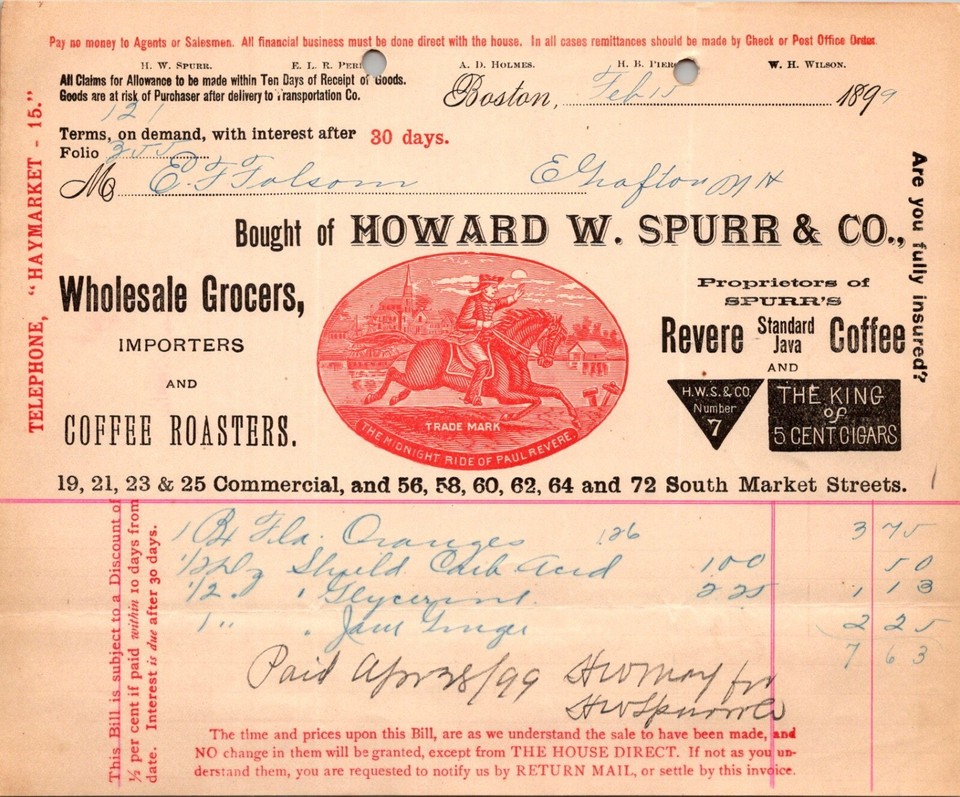 Pay no money to Agents or Salesmen. All financial business must be done direct with the house. In all cases remittances should be made by Check or Post Office Order.
H. W. SPURR. E. L. R. A. D. HOLMES. H. B. W. H. WILSON.
All Claims for Allowance to be made within Ten Days of Receipt of Goods.
Goods are at risk of Purchaser after delivery to Transportation Co.
Boston, Feb 15 1899
121
Terms, on demand, with interest after 30 days.
Folio 355
M E. F Folsom E Grafton N H
Bought of HOWARD W. SPURR & CO.,
Wholesale Grocers,
IMPORTERS
AND
COFFEE ROASTERS.
TRADE MARK
THE MIDNIGHT RIDE OF PAUL REVERE.
Proprietors of
SPURR'S
Revere Standard Java Coffee
AND
H.W.S. & CO.
Number
7
THE KING
of
5 CENT CIGARS
19, 21, 23 & 25 Commercial, and 56, 58, 60, 62, 64 and 72 South Market Streets.
TELEPHONE, "HAYMARKET - 15."
Are you fully insured?
1 Bx Fla. Oranges 126 3 75
1/2 Dz Shield Carb Acid 100 50
1/2 " " Glycerine 225 1 13
1 " " Jam Ginger 2 25
7 63
Paid Apr 28/99 H W May for
H W Spurr & Co
This Bill is subject to a Discount of
½ per cent if paid within 10 days from
date. Interest is due after 30 days.
The time and prices upon this Bill, are as we understand the sale to have been made, and
NO change in them will be granted, except from THE HOUSE DIRECT. If not as you un-
derstand them, you are requested to notify us by RETURN MAIL, or settle by this invoice.